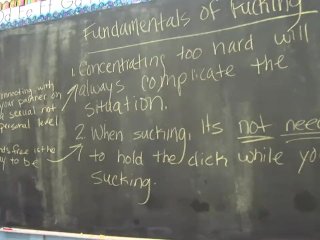 Fundamentals of Fucking
1. Concentrating too hard will
always complicate the
situation.
2. When sucking, Its not need
to hold the dick while yo
Sucking.
onnecting with
your partner on
a sexual not
personal level
free is the
to be